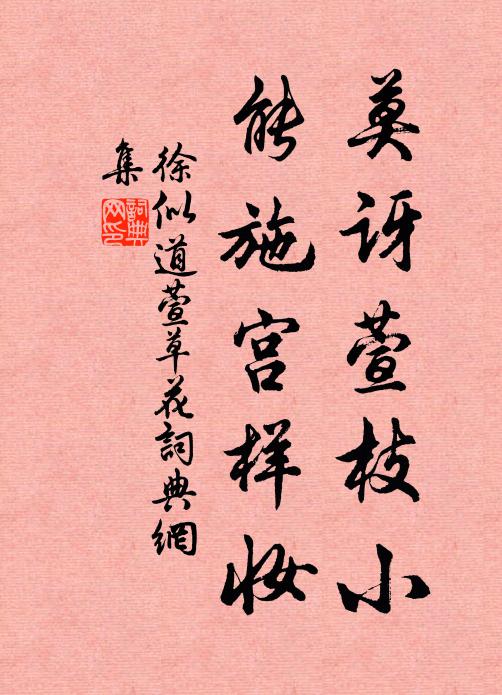 莫讶萱枝小
能施宫样妆
徐似道萱草花詞典網
集
詞典
网印